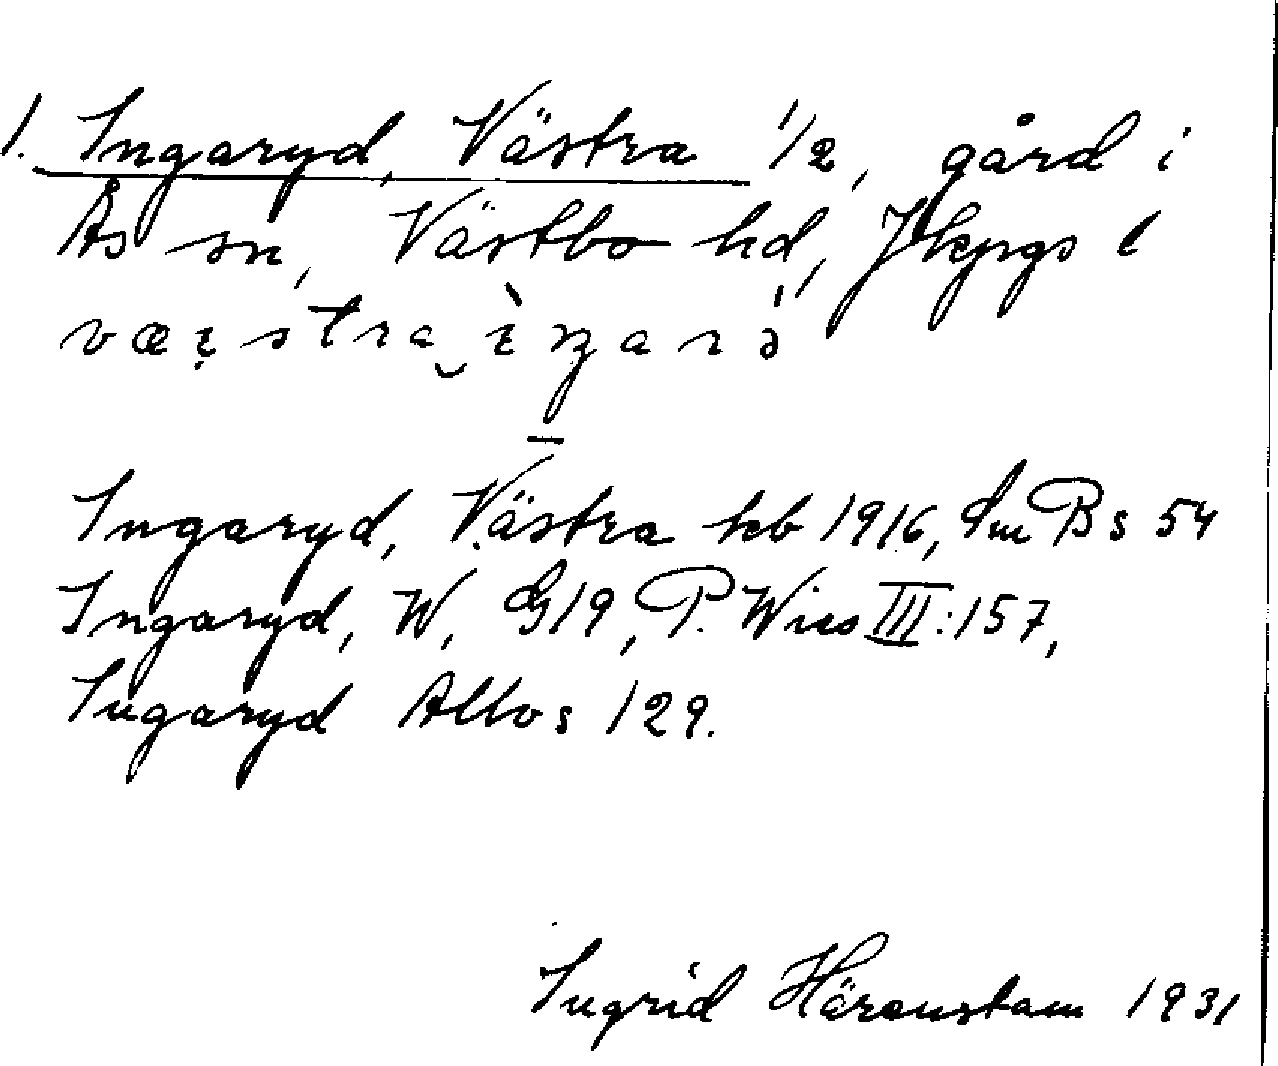 1. Ingaryd, Västra 1/2, gård i
Ås sn, Västbo hd, Jkpgs l
Ingaryd, Västra hcb 1916, Sm B s 54
Ingaryd, W, G19, P. Wies III:157,
Ingaryd Allvo s 129.
Ingrid Härenstam 1931